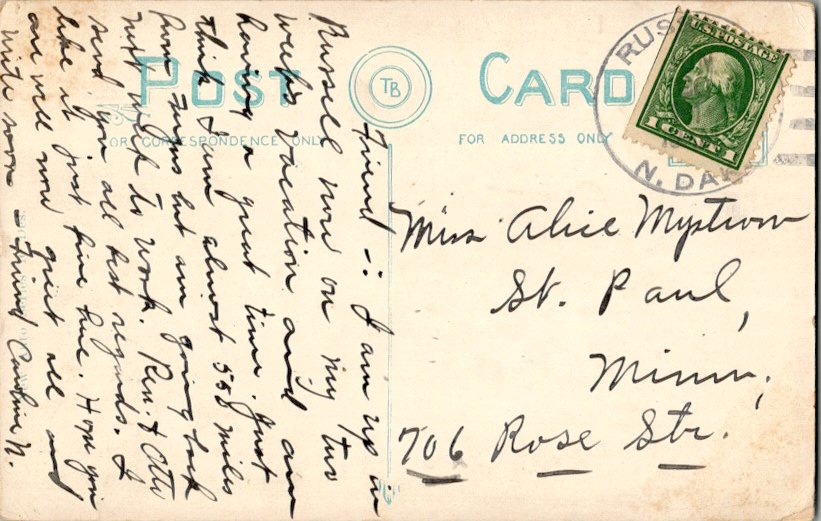 POST CARD
TB
FOR CORRESPONDENCE ONLY
FOR ADDRESS ONLY
RUSS
N. DAK
U.S. POSTAGE
1 CENT 1
Friend -: I am up in
Russell now on my two
weeks vacation and am
having a great time. Just
think I am almost 558 miles
from but am going back
next week to work. Ren. & Otto
send you all best regards. I
like it just fine here. Hope you
are well now greet all and
write soon - Friend Caroline N.
Miss Alice Mystrom
St. Paul,
Minn.,
706 Rose Str.